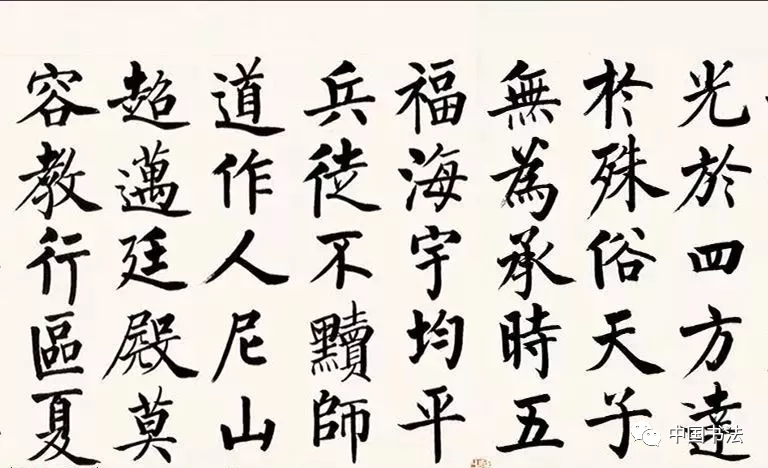 光於四方達
於殊俗天子
無為承時五
福海宇均平
兵徒不黷師
道作人尼山
超邁廷殿莫
容教行區夏
中国书法